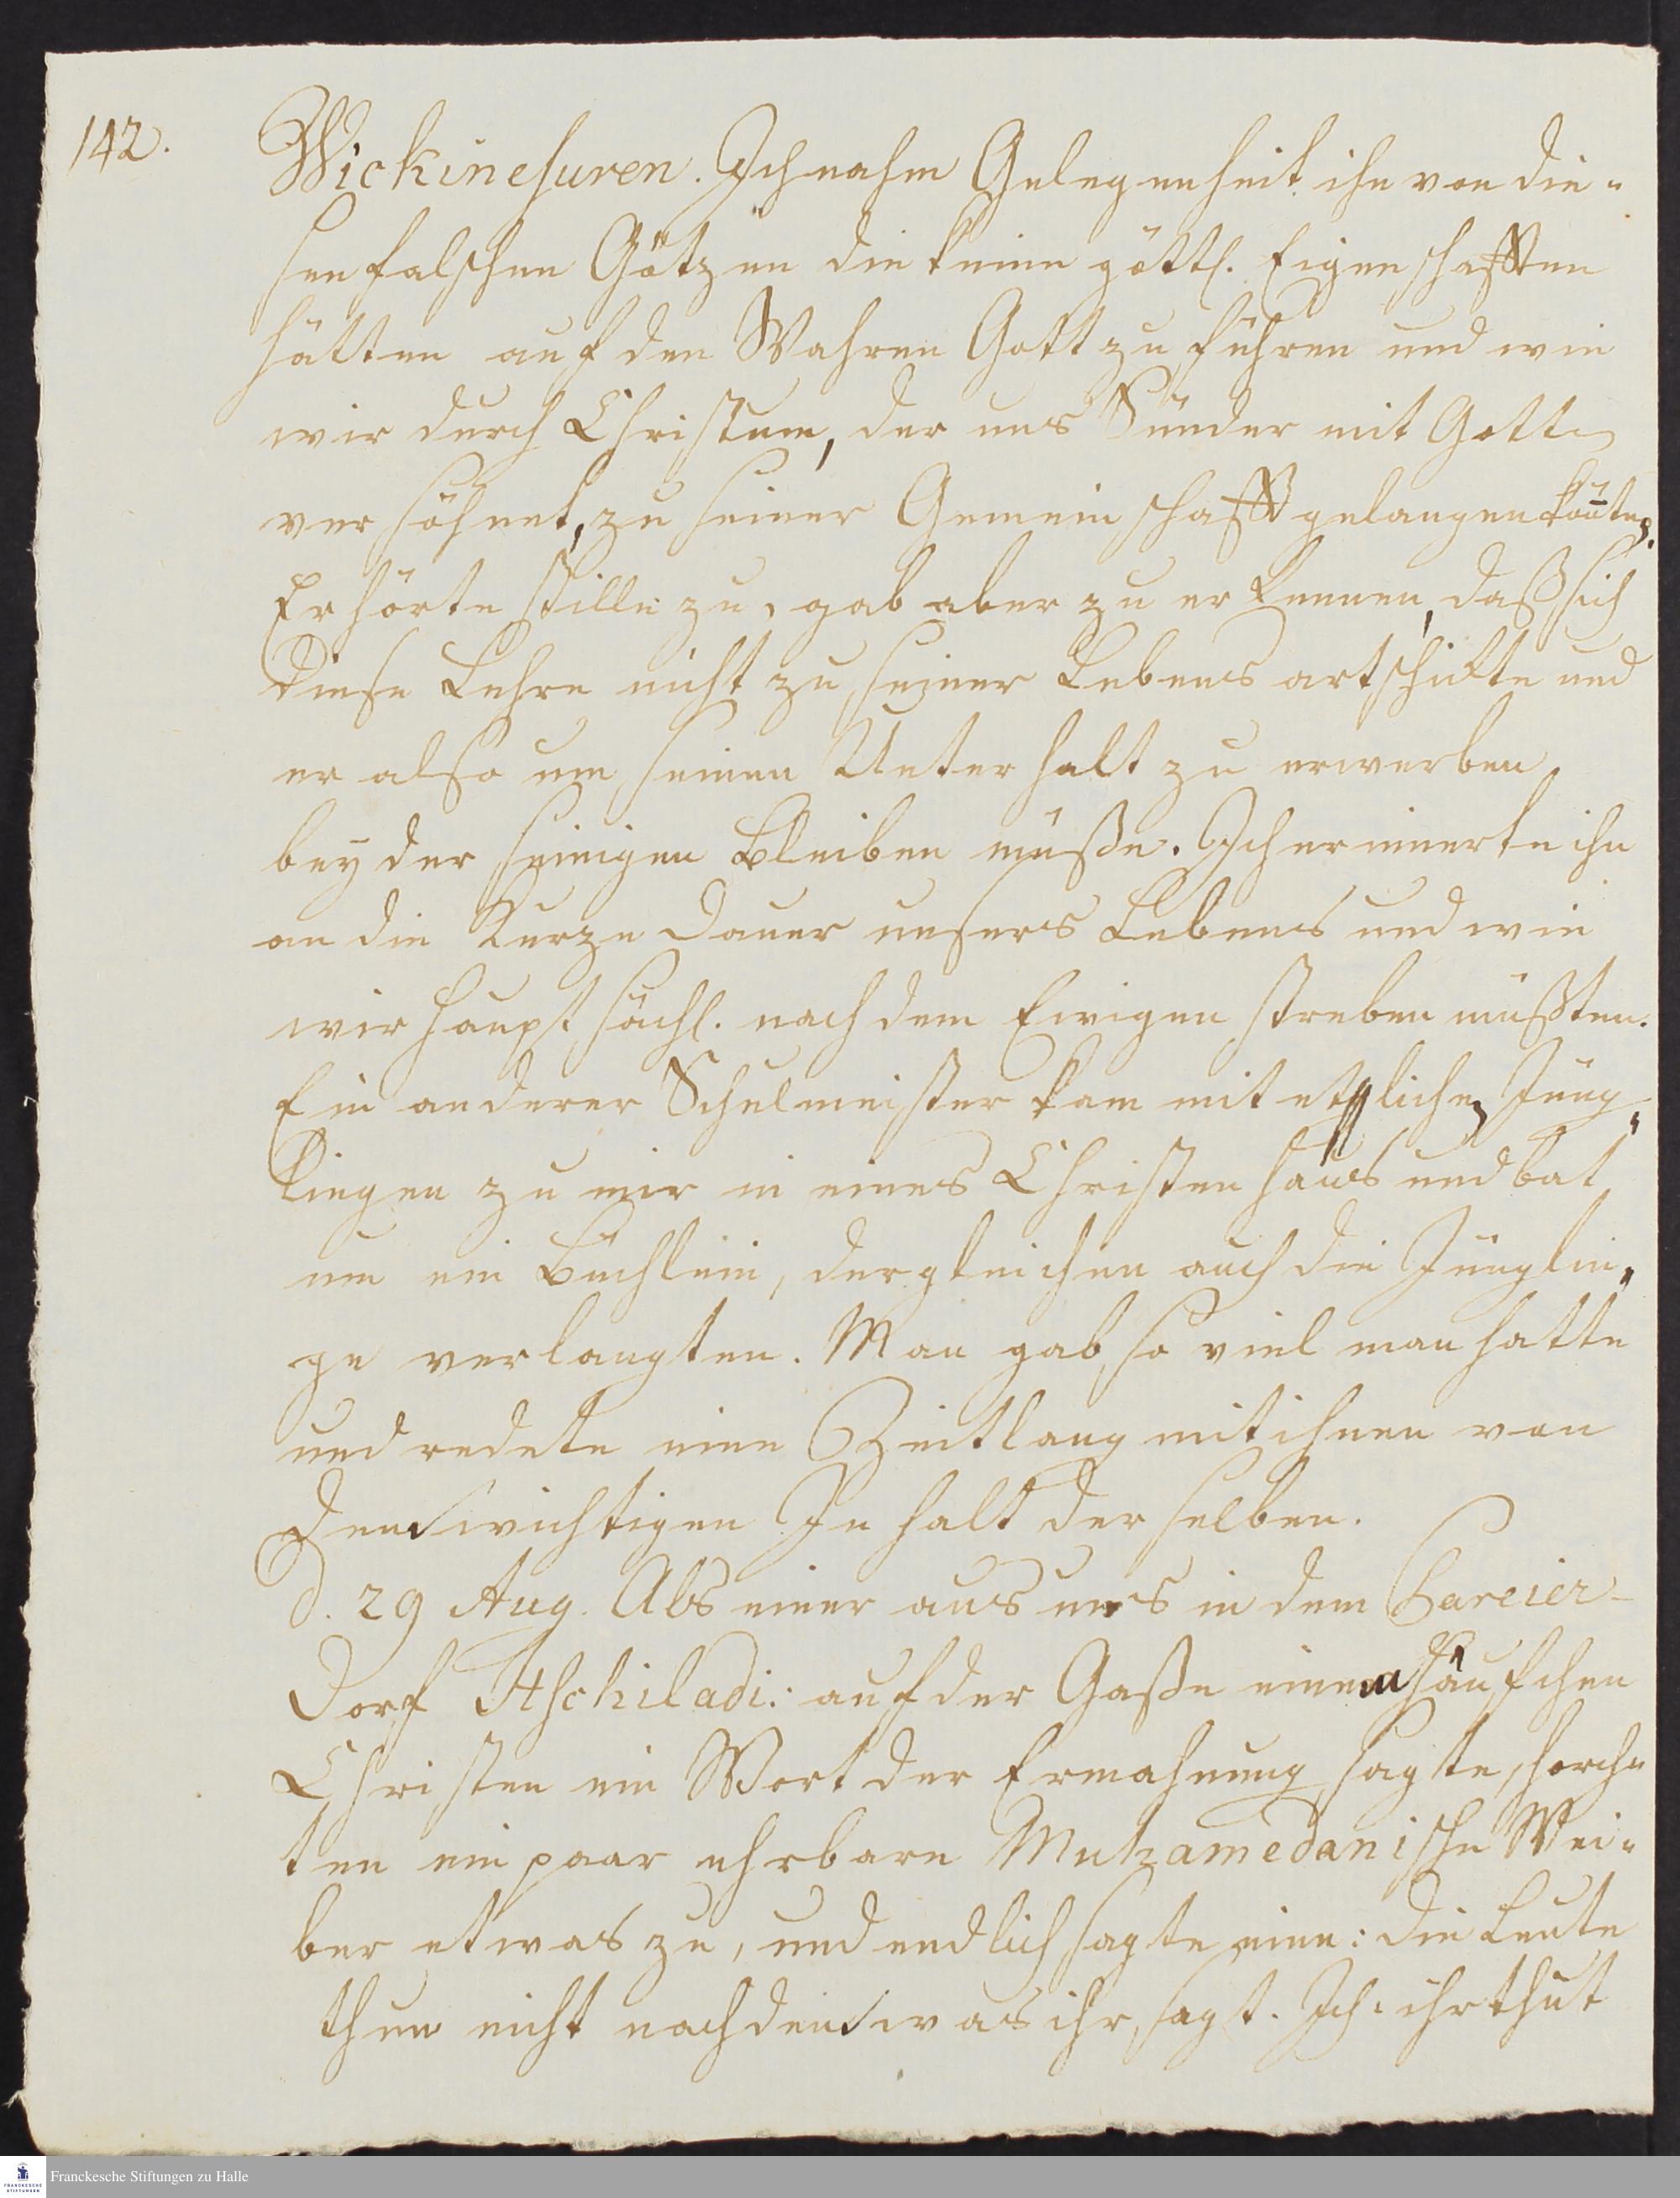 142.
Wickinesuren. Ich nahm Gelegenheit ihn von die=
sen falschen Götzen die keine göttl. Eigenschafften
hätten auf den Wahren Gott zu führen und wie
wir durch Christum, der uns Sünder mit Gott
versöhnet, zu seiner Gemeinschafft gelangen könten.
Er hörte stille zu, gab aber zu erkennen, daß sich
diese Lehre nicht zu seiner Lebensart schickte und
er also um seinen Unterhalt zu erwerben
bey der seinigen bleiben müße. Ich erinnerte ihn
an die Kurze Dauer unsers Lebens und wie
wir hauptsächl. nach dem Ewigen streben müßten.
Ein anderer Schulmeister kam mit etlichen Jüng=
lingen zu mir in eines Christen Haus und bat
um ein Büchlein, dergleichen auch die Jünglin=
ge verlangten. Man gab so viel man hatte
und redete eine Zeitlang mit ihnen von
dem wichtigen Inhalt derselben.
d. 29 Aug. Als einer aus uns in dem Bareier-
Dorf Itschiladi: auf der Gaße einem Häufchen
Christen ein Wort der Ermahnung sagte, horch=
ten ein paar ehrbare Muhamedanische Wei=
ber etwas zu, und endlich sagte eine: Die Leute
thun nicht nach dem was ihr sagt. Ich: ihr thut
Franckesche Stiftungen zu Halle